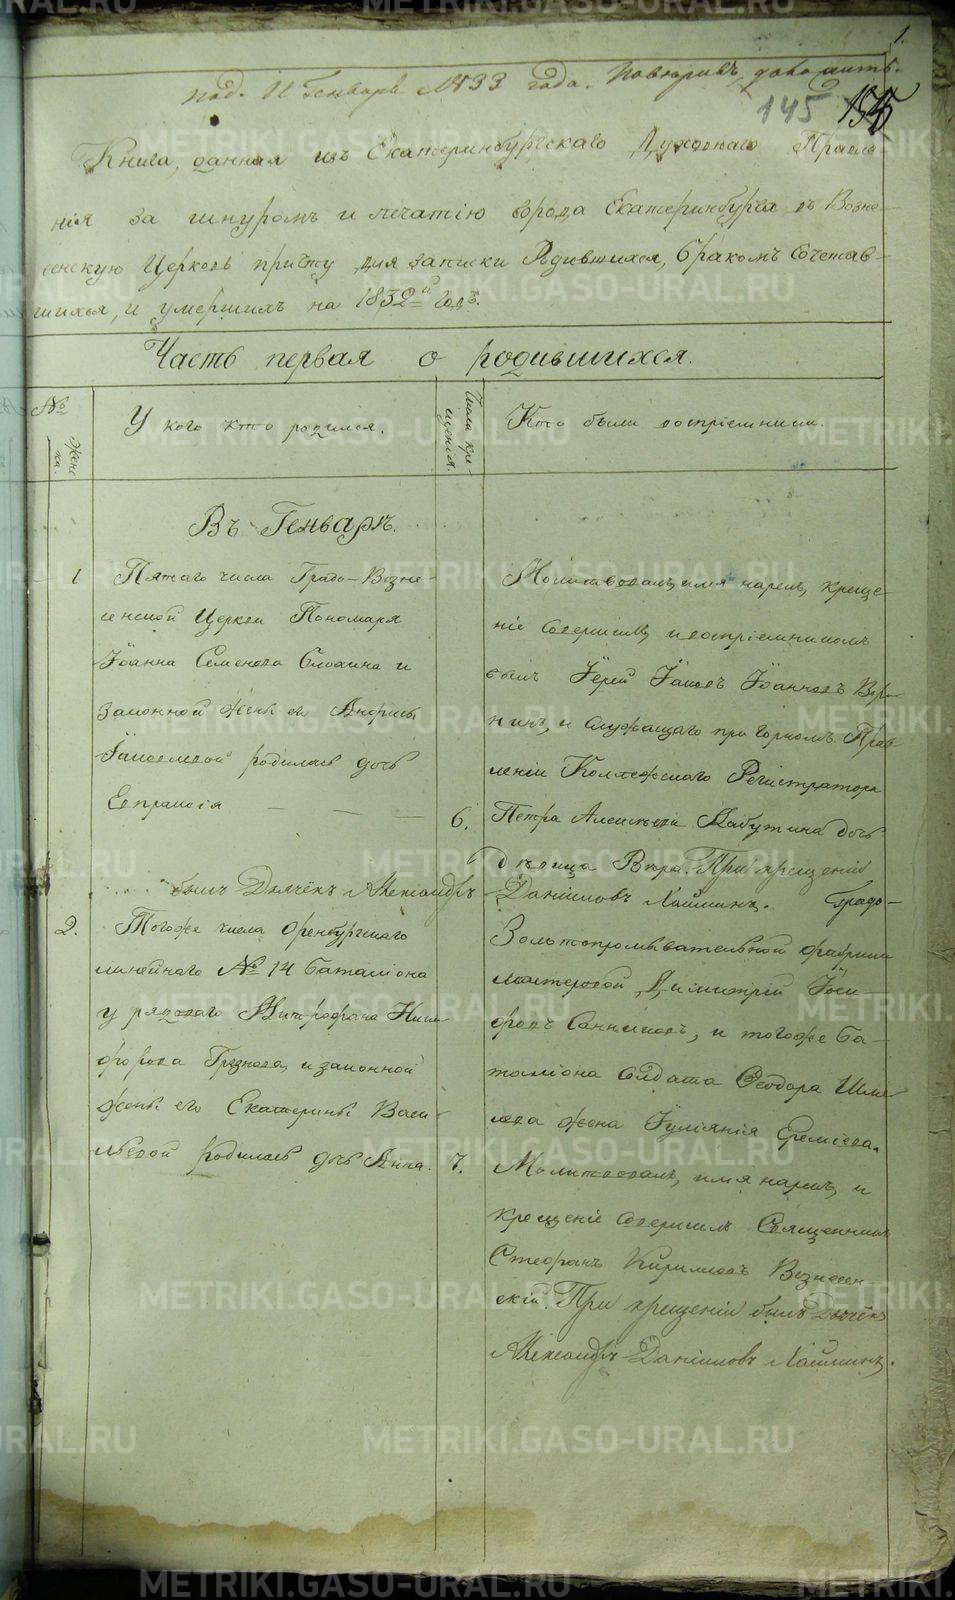 1.
под. 11 Генваря 1833 года. Повѣривъ, доложить.
145
Книга, данная изъ Екатеринбургскаго Духовнаго Правле-
нія за шнуромъ и печатію города Екатеринбурга въ Возне-
сенскую Церковь причту для записки Родившихся, бракомъ Сочетав-
шихся, и умершихъ на 1832й Годъ.
Часть первая о родившихся.
№
Женс
ка.
У кого кто родился.
Числа кре-
щенія.
Кто были воспріемники.
Въ Генварѣ.
1 Пятаго числа Градо-Возне-
сенской Церкви Пономаря
Іоанна Семенова и
законной жены его
Іаковлевой родилась дочь
Евпраксія
6.
Молитвовалъ, имя нарекъ, креще
ніе совершилъ, и воспріемникомъ
былъ Іерей Іаковъ Іоанновъ
и служащаго при Горномъ Прав
леніи Коллежскаго Регистратора
Петра Алексѣева Лабутина дочь
дѣвица Вѣра. При крещеніи
былъ Дьячекъ Александръ Даніиловъ Градо-
2. Тогоже числа Оренбургскаго
линейнаго № 14 Баталіона
у рядоваго Митрофана Ники-
форова и законной
жены его Екатерины Васи-
льевой родилась дочь Анна. 7.
Золотопромывательной фабрики
мастеровой Димитрій
и тогоже Ба-
таліона Солдата Ѳеодора
жена Іуліянія Еремѣева.
Молитвовалъ, имя нарекъ, и
крещеніе совершилъ Священникъ
Стефанъ Кириловъ Вознесен-
скій. При крещеніи былъ Дьячекъ
Александръ Даніиловъ
METRIKI.GASO-URAL.RU